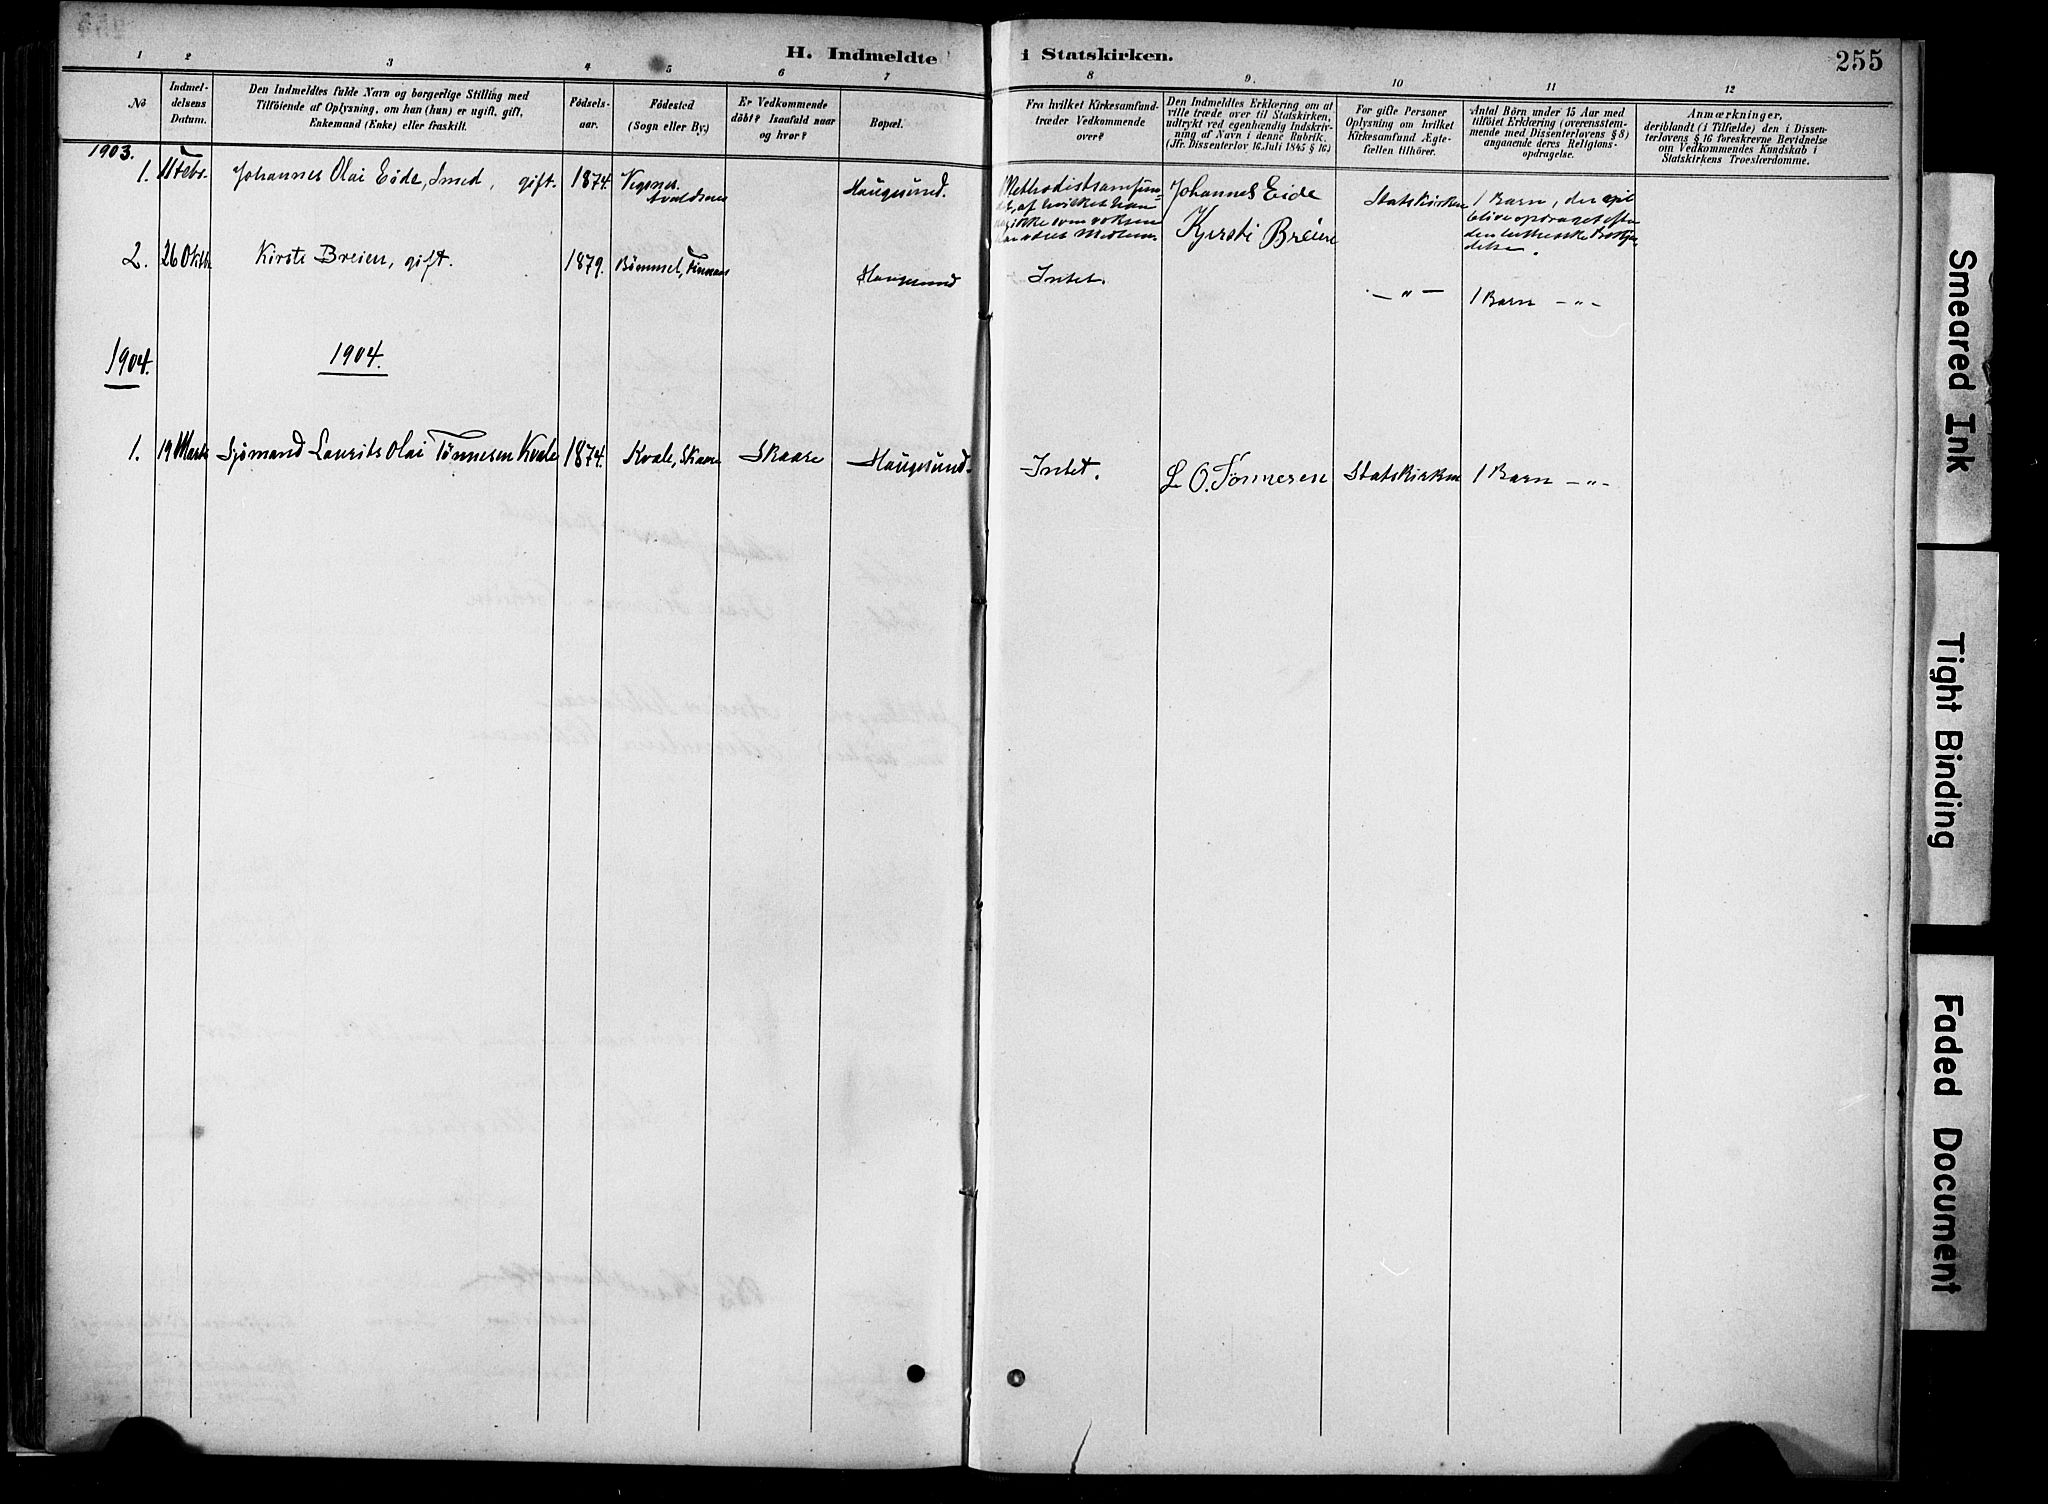 H. Indmeldte i Statskirken.
255
1 2 3 4 5 6 7 8 9. 10 11 12
No
Indmel-
delsens
Datum.
Den Indmeldtes fulde Navn og borgerlige Stilling med
Tilföiende af Oplysning, om han (hun) er ugift, gift,
Enkemand (Enke) eller fraskilt.
Födsels-
aar.
Födested
(Sogn eller By.)
Er Vedkommende
döbt? Isaafald naar
og hvor?
Bopæl.
Fra hvilket Kirkesamfund-
træder Vedkommende
over?
Den Indmeldtes Erklæring om at
ville træde over til Statskirken,
udtrykt ved egenhændig Indskriv-
ning af Navn i denne Rubrik.
(Jfr. Dissenterlov 16. Juli 1845 § 16.)
For gifte Personer
Oplysning om hvilket
Kirkesamfund Ægte-
fællen tilhörer.
Antal Börn under 15 Aar med
tilföiet Erklæring (overensstem-
mende med Dissenterlovens § 8)
angaaende deres Religions-
opdragelse.
Anmærkninger,
deriblandt (i Tilfælde) den i Dissen-
terlovens § 16 foreskrevne Bevidnelse
om Vedkommendes Kundskab i
Statskirkens Troeslærdomme.
1903.
1. 11 Febr. Johannes Olai Eide, Smed, gift. 1874. Vigsnes
Avaldsnes
Haugesund.
Methodistsamfun-
det, af hvilket han
ikke som voksen
har været Medlem.
Johannes Eide
Statskirken
1 Barn, der
blive opdraget efter
den lutherske
delse.
2. 26 Oktbr Kirsti Breien, gift. 1879. Bömmel, Finnaas
Haugesund
Intet.
Kjersti Breien
— " —
1 Barn — " —
1904. 1904.
1. 19 Marts Sjömand Laurits Olai Tönnesen Kvale 1874. Kvale, Skaare Skaare Haugesund.
Intet. L. O. Tönnesen Statskirken 1 Barn — " —
Smeared Ink
Tight Binding
Faded Document